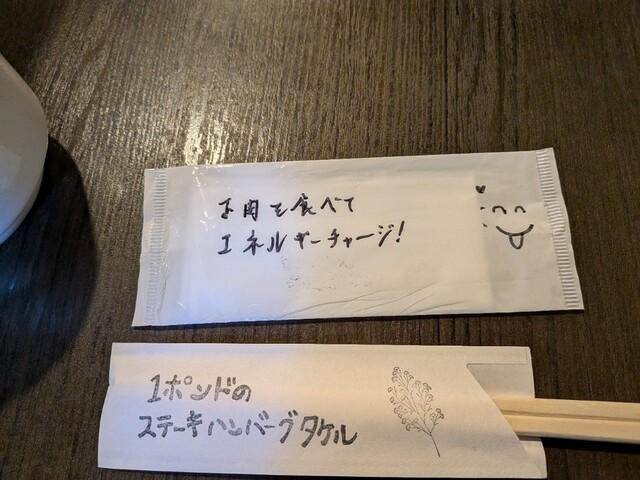 お肉を食べて
エネルギーチャージ!
1ポンドの
ステーキハンバーグタケル